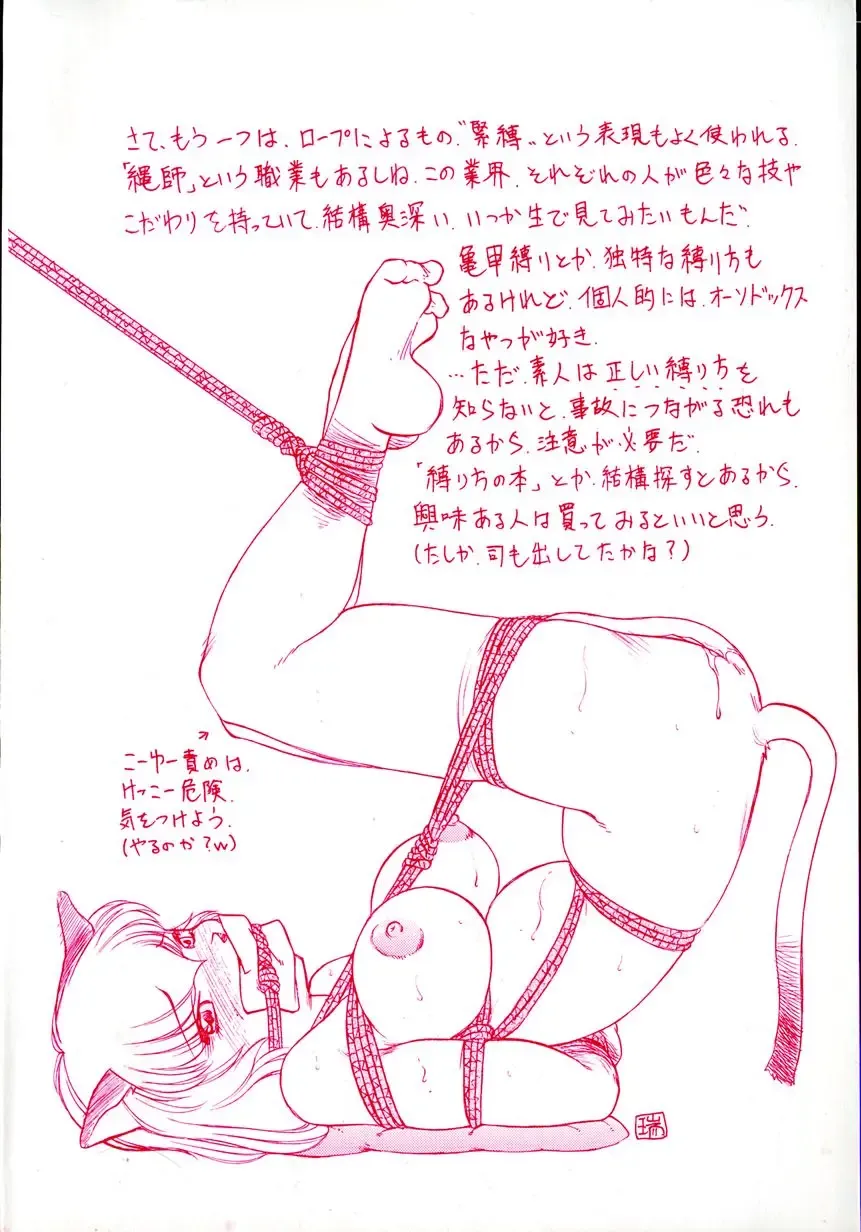 さて、もう一つは、ロープによるもの。“緊縛”という表現もよく使われる。
「縄師」という職業もあるしね。この業界、それぞれの人が色々な技や
こだわりを持っていて、結構奥深い。いつか生で見てみたいもんだ。
亀甲縛りとか、独特な縛り方も
あるけれど、個人的には、オーソドックス
なやつが好き。
…ただ、素人は正しい縛り方を
知らないと、事故につながる恐れも
あるから、注意が必要だ。
「縛り方の本」とか、結構探すとあるから、
興味ある人は買ってみるといいと思う。
(たしか、司も出してたかな?)
こーゆー責めは、
けっこー危険。
気をつけよう。
(やるのか?w)
瑞